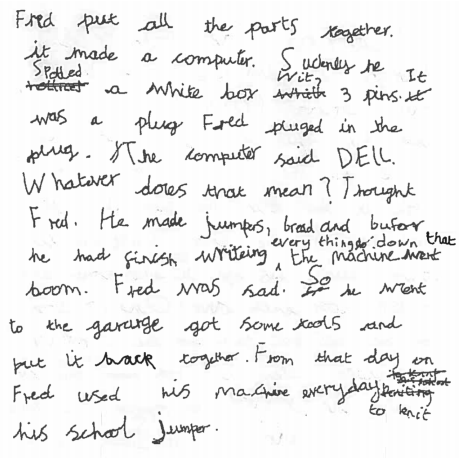 Fred put all the parts together.
it made a computer. Sudenly he
Spotted a white box with 3 pins. It
was a plug Fred pluged in the
plug. The computer said DELL.
Whatever does that mean? Thought
Fred. He made jumpers, bread and before
he had finish writeing every things down that the machine went
boom. Fred was sad. So he went
to the garage got some tools and
put it back together. From that day on
Fred used his machine everyday to knit
his school jumper.